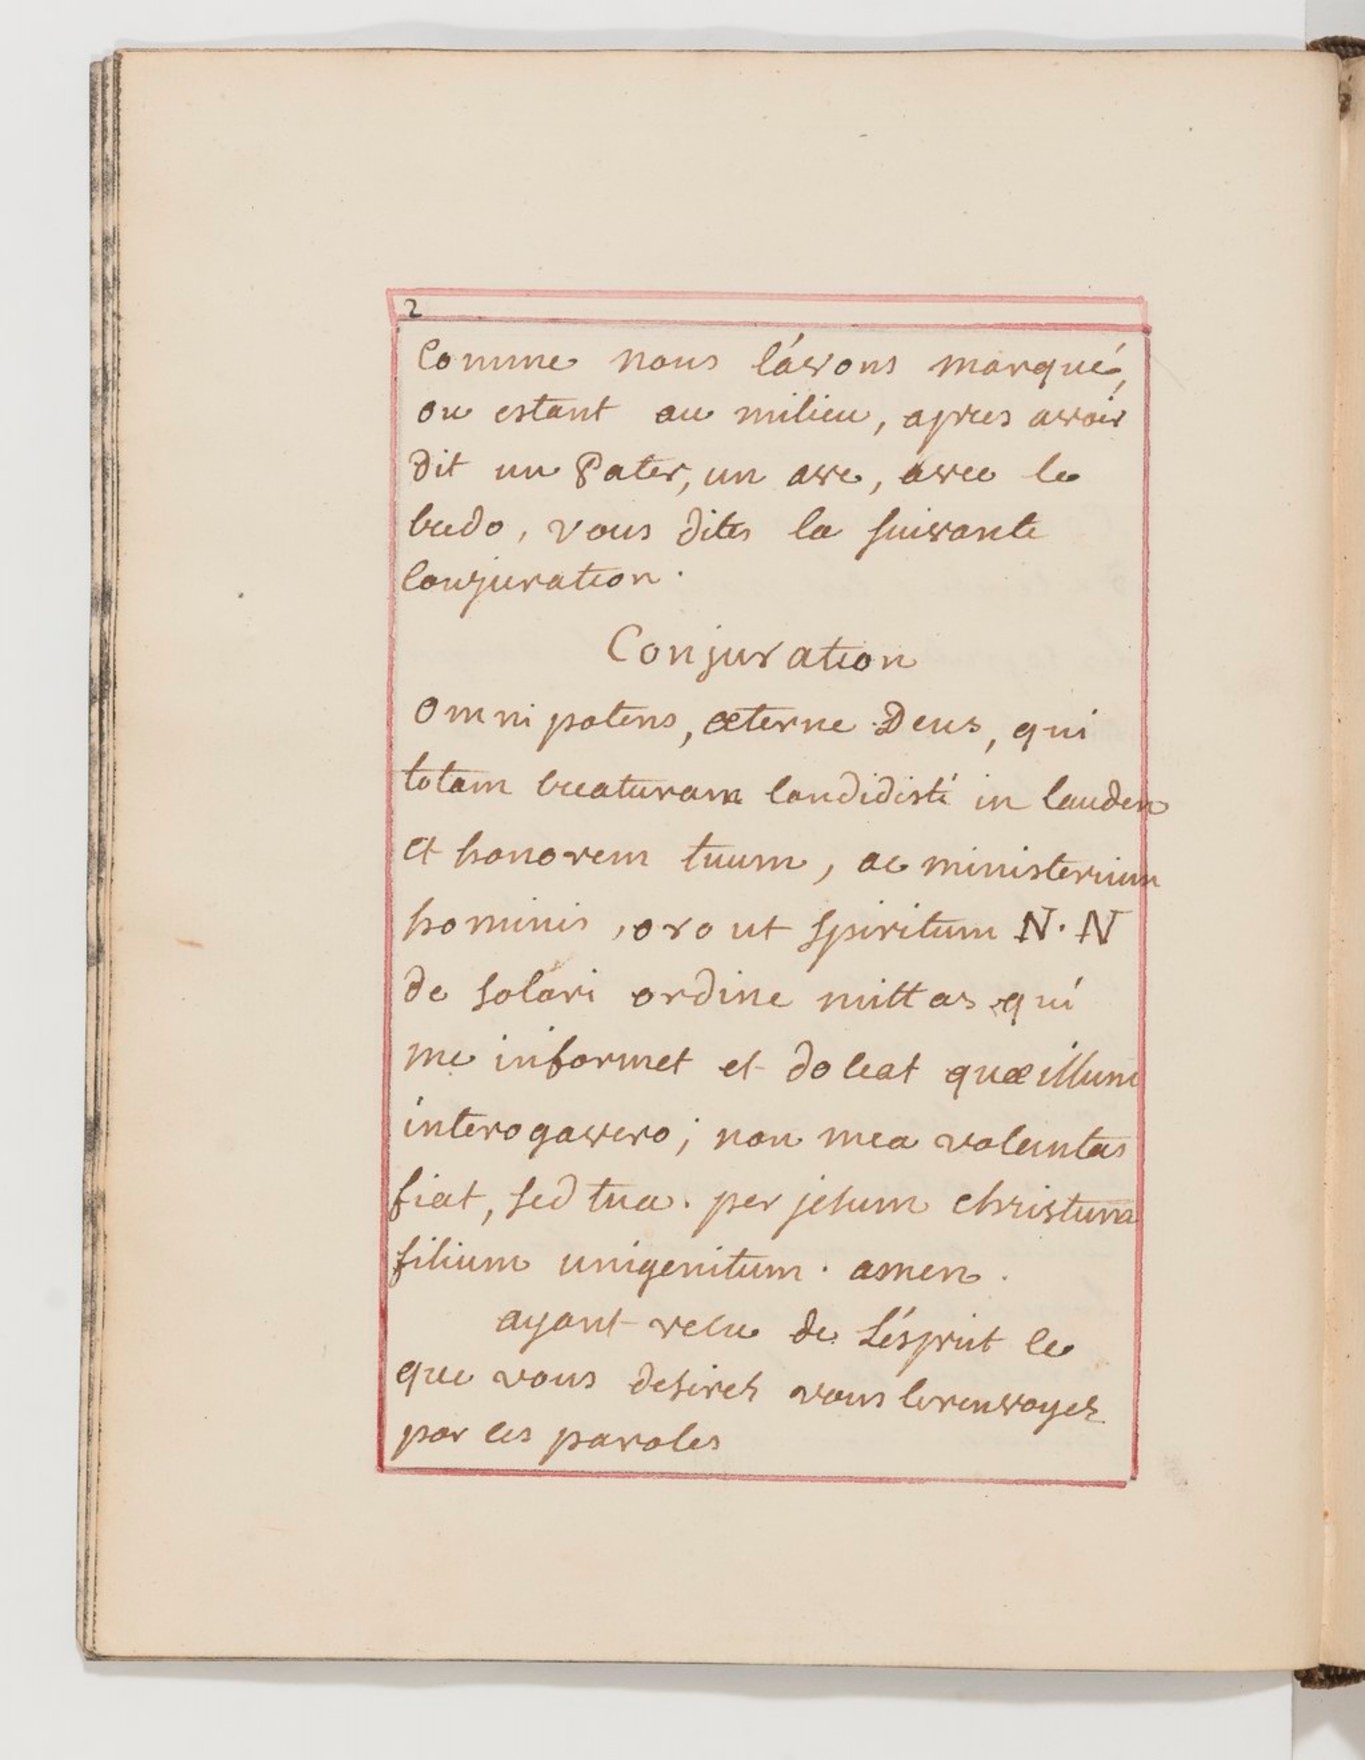 2
Comme nous l'avons marqué,
ou estant au milieu, apres avoir
dit un Pater, un ave, avec le
credo, vous dites la suivante
Conjuration.
Conjuration
Omnipotens, æterne Deus, qui
totam creaturam condidisti in laudem
et honorem tuum, ac ministerium
hominis, oro ut spiritum N. N
de solari ordine mittas qui
me informet et doceat quæ illum
interogavero; non mea voluntas
fiat, sed tua. per jesum christum
filium unigenitum. amen.
ayant recu de L'ésprit ce
que vous desirez vous le renvoyez
par ces paroles